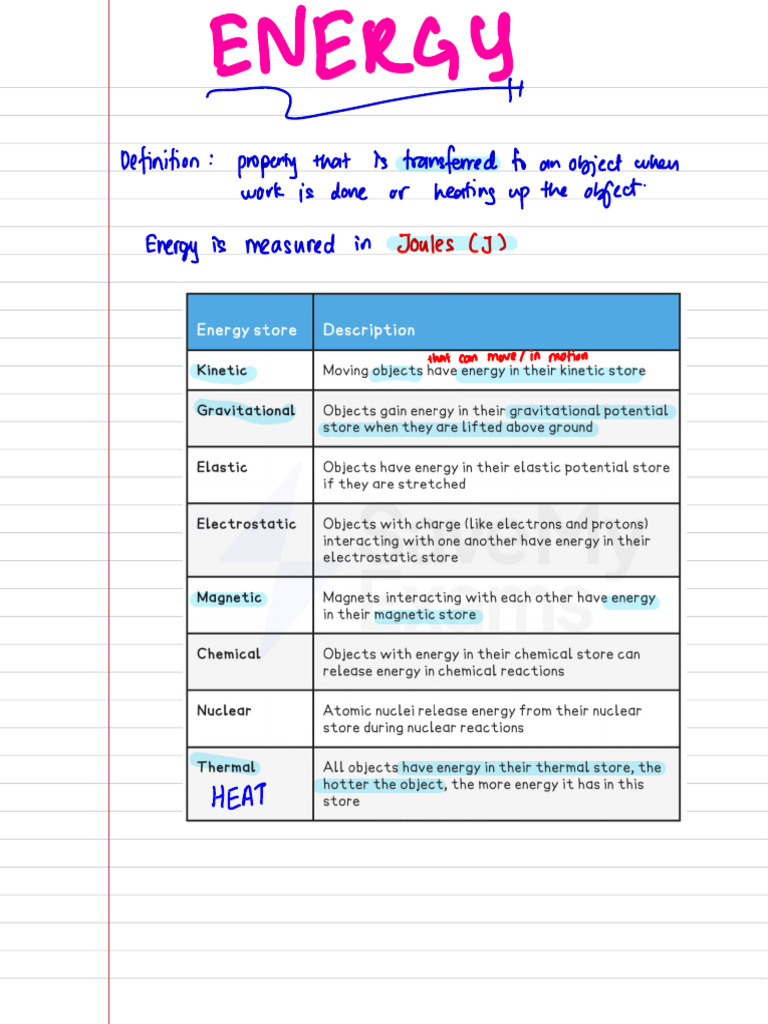 ENERGY
Definition: property that is transferred to an object when
work is done or heating up the object.
Energy is measured in Joules (J)
Energy store Description
that can move/in motion
Kinetic Moving objects have energy in their kinetic store
Gravitational Objects gain energy in their gravitational potential
store when they are lifted above ground
Elastic Objects have energy in their elastic potential store
if they are stretched
Electrostatic Objects with charge (like electrons and protons)
interacting with one another have energy in their
electrostatic store
Magnetic Magnets interacting with each other have energy
in their magnetic store
Chemical Objects with energy in their chemical store can
release energy in chemical reactions
Nuclear Atomic nuclei release energy from their nuclear
store during nuclear reactions
Thermal All objects have energy in their thermal store, the
HEAT hotter the object, the more energy it has in this
store
Save My
Exams